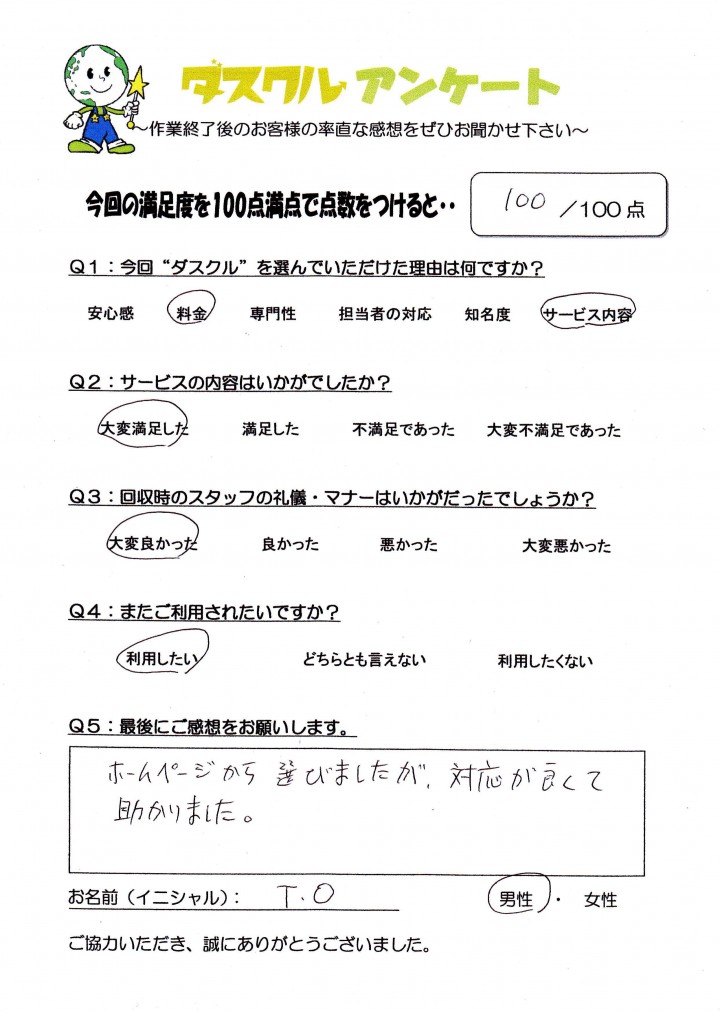 ダスクル アンケート
～作業終了後のお客様の率直な感想をぜひお聞かせ下さい～
今回の満足度を100点満点で点数をつけると‥ 100 ／100点
Q1：今回“ダスクル”を選んでいただけた理由は何ですか？
安心感 料金 専門性 担当者の対応 知名度 サービス内容
Q2：サービスの内容はいかがでしたか？
大変満足した 満足した 不満足であった 大変不満足であった
Q3：回収時のスタッフの礼儀・マナーはいかがだったでしょうか？
大変良かった 良かった 悪かった 大変悪かった
Q4：またご利用されたいですか？
利用したい どちらとも言えない 利用したくない
Q5：最後にご感想をお願いします。
ホームページから選びましたが、対応が良くて
助かりました。
お名前（イニシャル）： T.O 男性 ・ 女性
ご協力いただき、誠にありがとうございました。